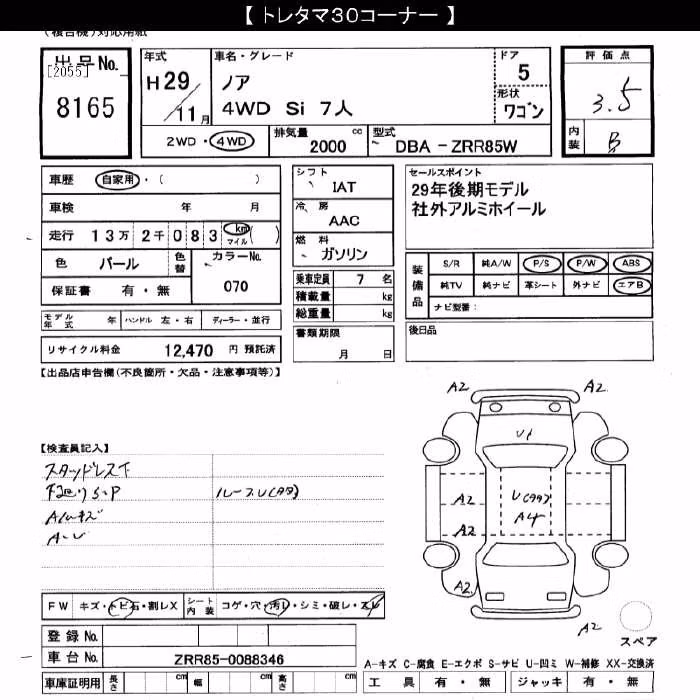 【 トレタマ30コーナー 】
(複合機)対応用紙
出品No.
[2055]
8165
年式
H29/11月
車名・グレード
ノア
4WD Si 7人
ドア
5
形状
ワゴン
評価点
3.5
内装
B
2WD・4WD
排気量 2000 cc
型式 DBA-ZRR85W
車歴 自家用・( )
車検 年 月
走行 13万 2千 083 km マイル ( )
色 パール 色替
カラーNo. 070
保証書 有・無
モデル年式 年 ハンドル 左・右 ディーラー・並行
リサイクル料金 12,470 円 預託済
シフト
IAT
冷房
AAC
燃料
ガソリン
乗車定員 7 名
積載量 kg
総重量 kg
書類期限
月 日
セールスポイント
29年後期モデル
社外アルミホイール
装備品
S/R 純A/W P/S P/W ABS
純TV 純ナビ 革シート 外ナビ エアB
ナビ型番:
後日品
【出品店申告欄(不良箇所・欠品・注意事項等)】
【検査員記入】
スタッドレス下
下廻りS・P
ルーフU(99)
A/Wキズ
A・U
FW キズ・トビ石・割レX
シート内装 コゲ・穴・汚レ・シミ・破レ・スレ
登録No.
車台No. ZRR85-0088346
車庫証明用 長さ cm 幅 cm 高さ cm
A2 A2
U1
A2
U(99)
A4
A2
A2
A2
スペア
A-キズ C-腐食 E-エクボ S-サビ U-凹ミ W-補修 XX-交換済
工具 有・無 ジャッキ 有・無